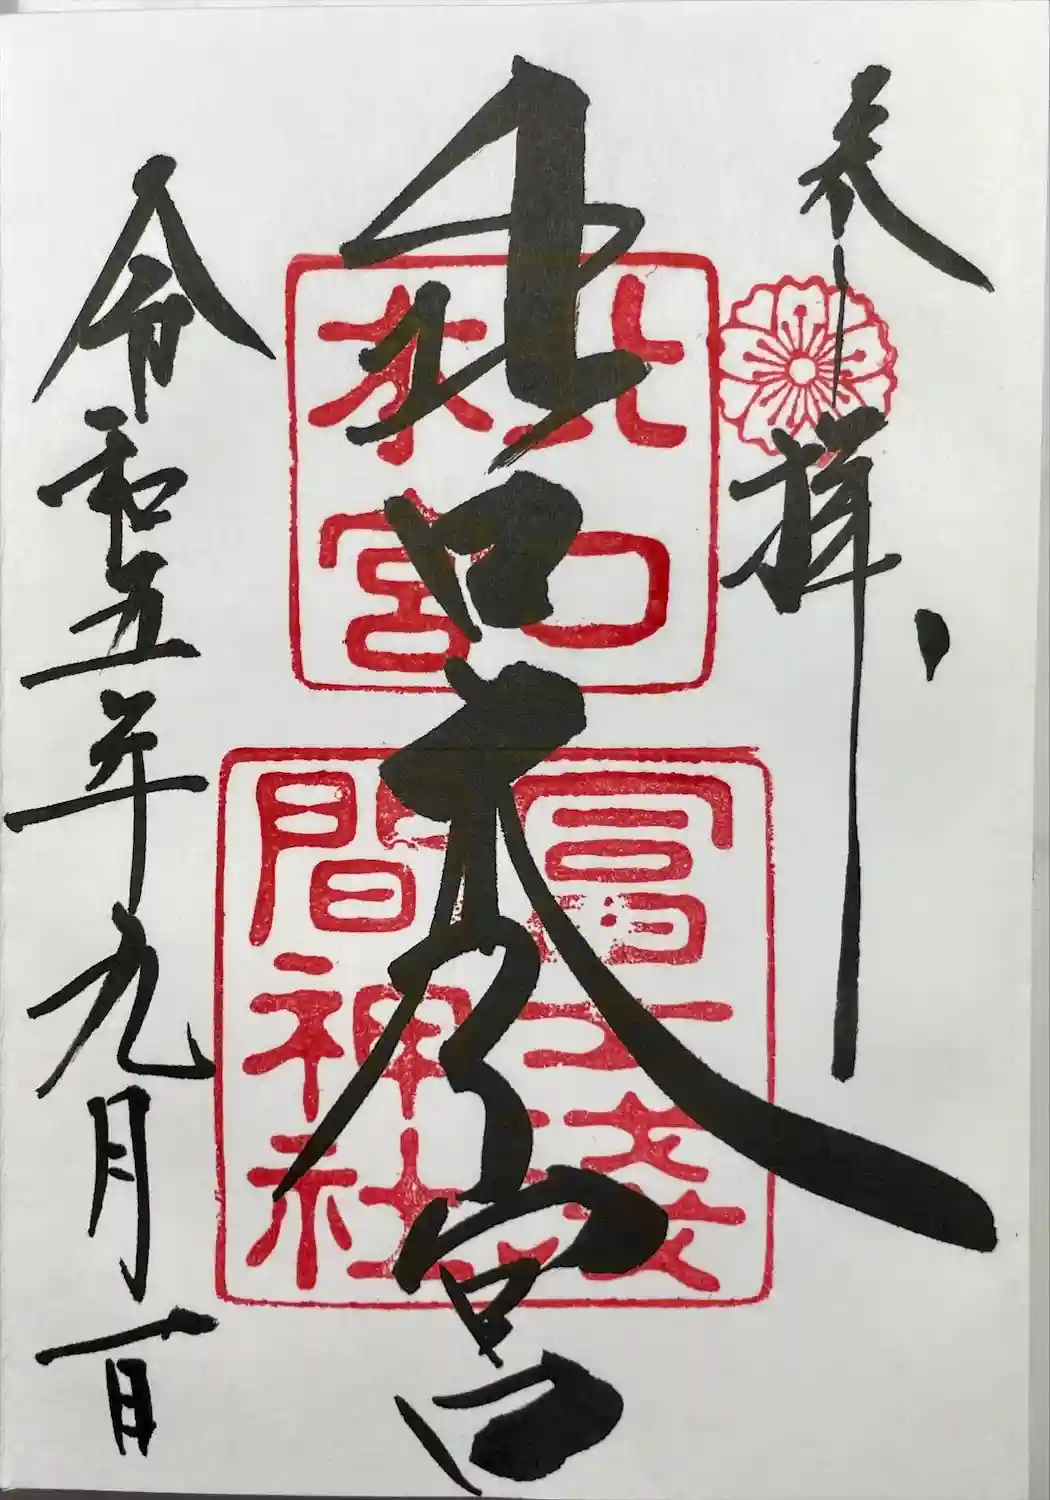 奉拝
北口本宮
令和五年九月一日
北口
本宮
冨士淺
間神社